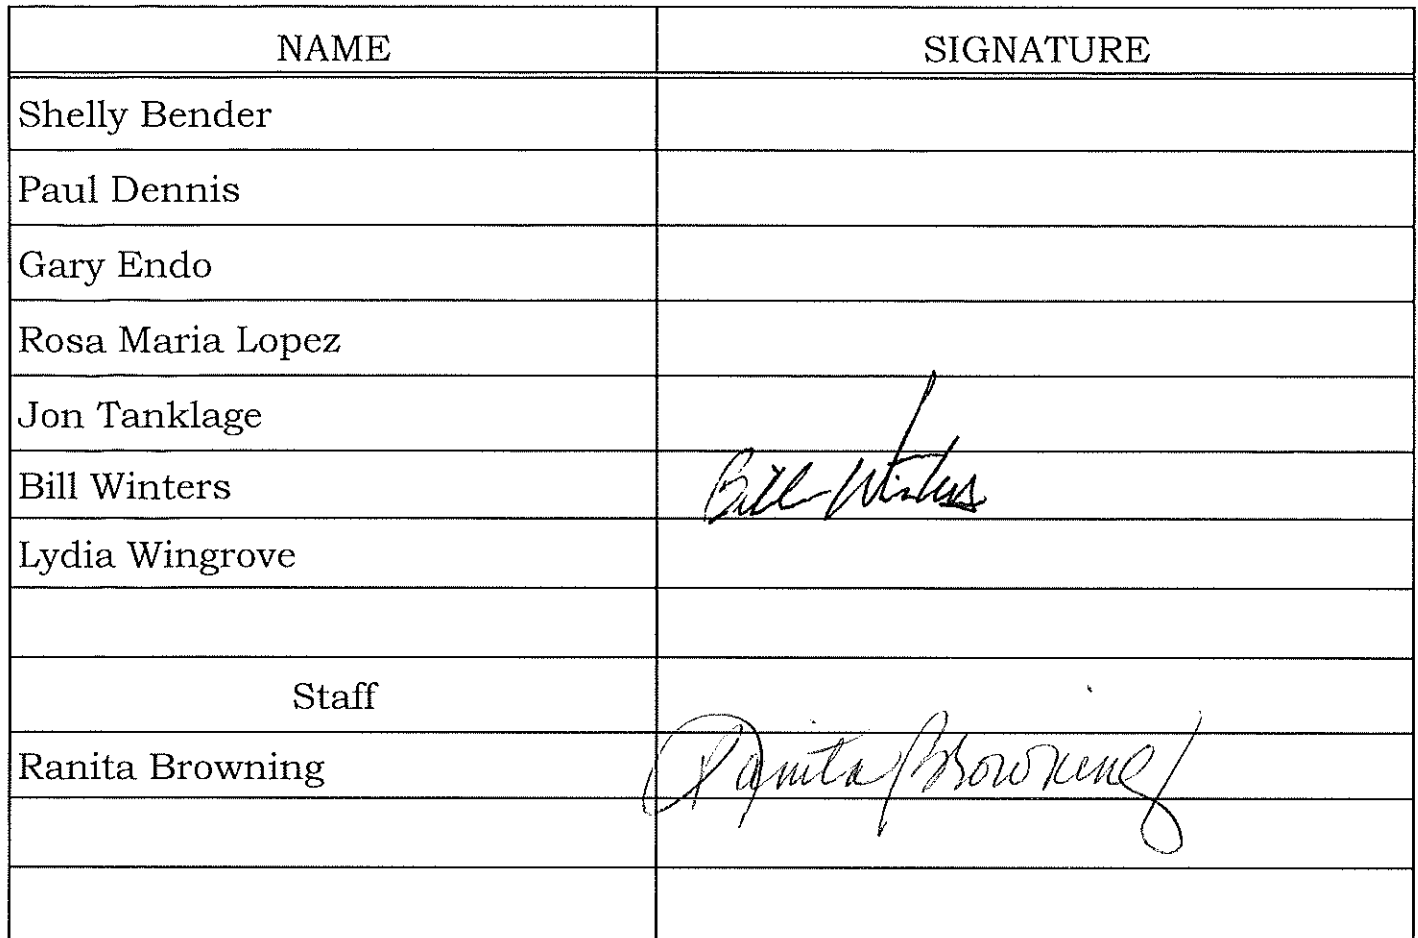 NAME SIGNATURE
Shelly Bender
Paul Dennis
Gary Endo
Rosa Maria Lopez
Jon Tanklage
Bill Winters Bill Winters
Lydia Wingrove
Staff
Ranita Browning Ranita Browning